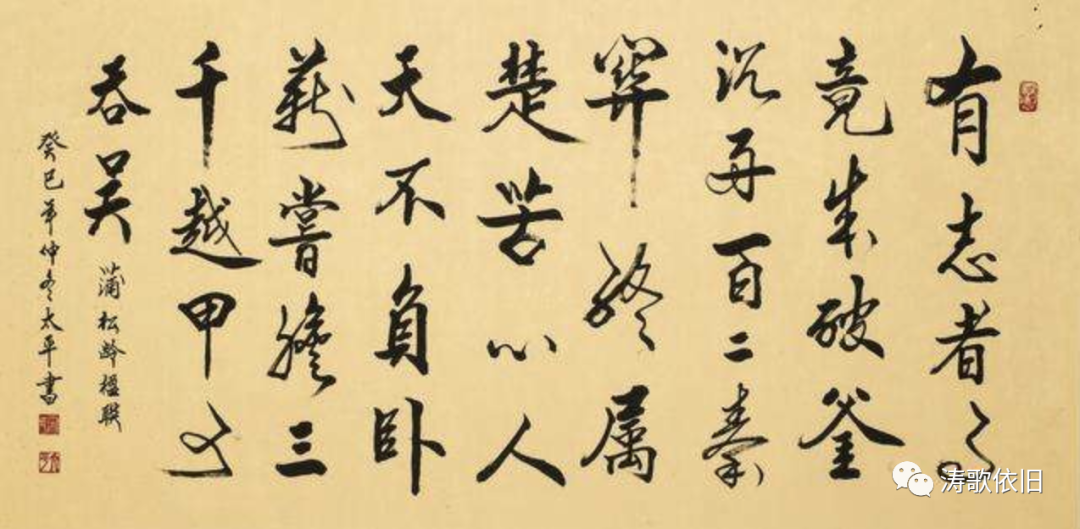 有志者事
竟成破釜
沉舟百二秦
關終属
楚苦心人
天不負卧
薪嘗膽三
千越甲可
吞吴
蒲松龄楹联
癸巳年仲冬太平書
涛歌依旧